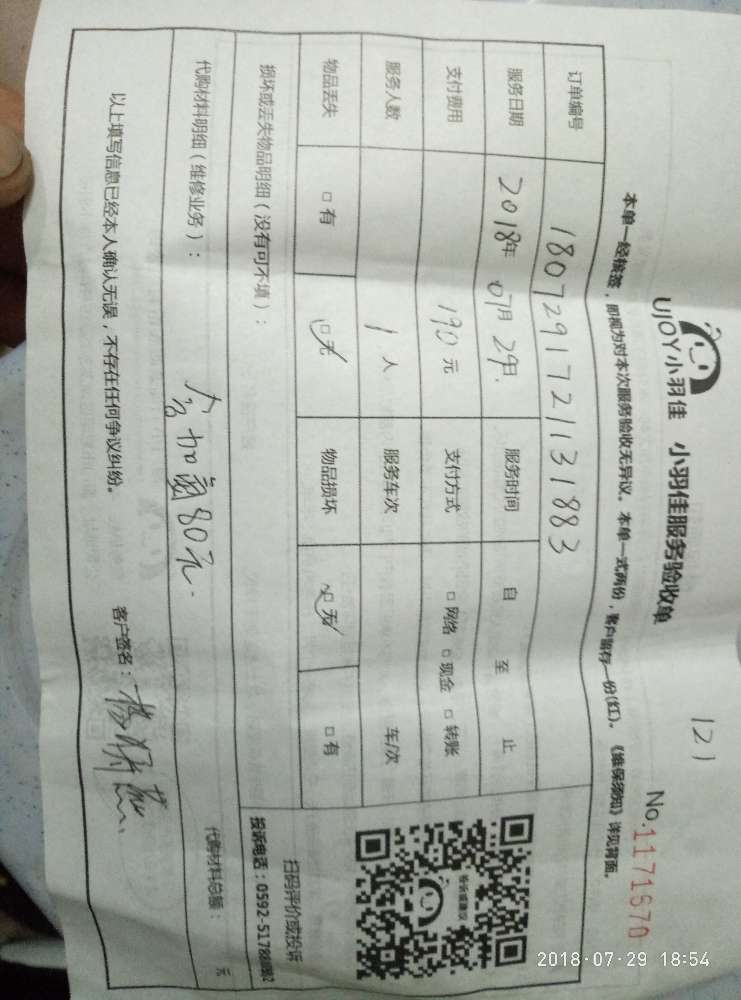 121
UJOY小羽佳 小羽佳服务验收单
No.1171670
本单一经核签，即视为对本次服务验收无异议。本单一式两份，客户留存一份(红)。《维保须知》详见背面。
订单编号 180729172113 1883
服务日期 2018年 07月 29日. 服务时间 自 至 止
支付费用 190元 支付方式 □ 网络 □ 现金 □ 转账
服务人数 1 人 服务车次 车/次
物品丢失 □ 有 □ 无 物品损坏 □ 无 □ 有
损坏或丢失物品明细（没有可不填）：
扫码评价或投诉
投诉电话：0592-5178
代购材料明细（维修业务）：
含加氟80元.
代购材料总额： 元
以上填写信息已经本人确认无误，不存在任何争议纠纷。 客户签名：
2018-07-29 18:54